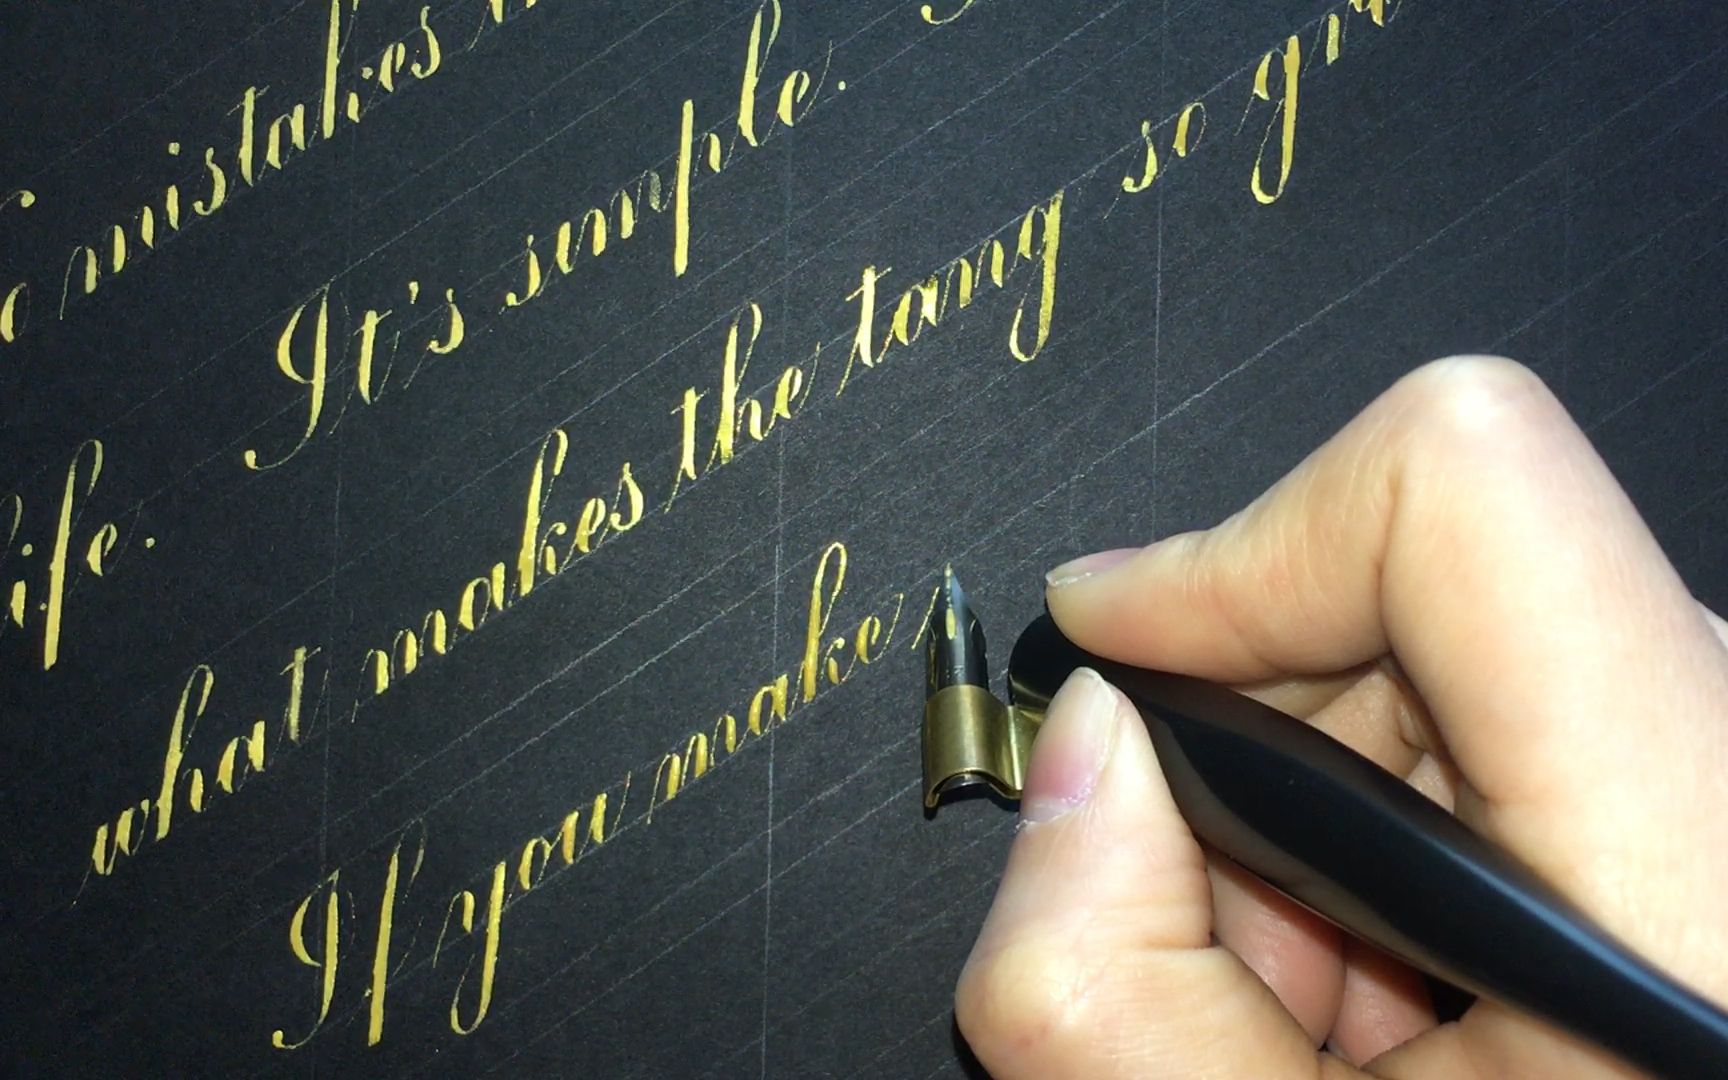 mistakes
life. It's simple.
what makes the tang so
If you make